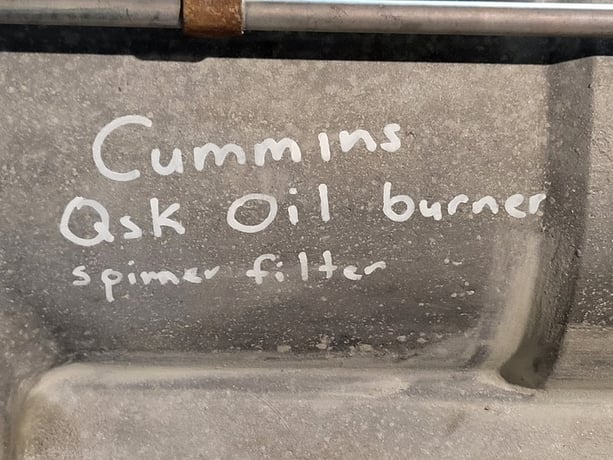 Cummins
Qsk Oil burner
spinner filter